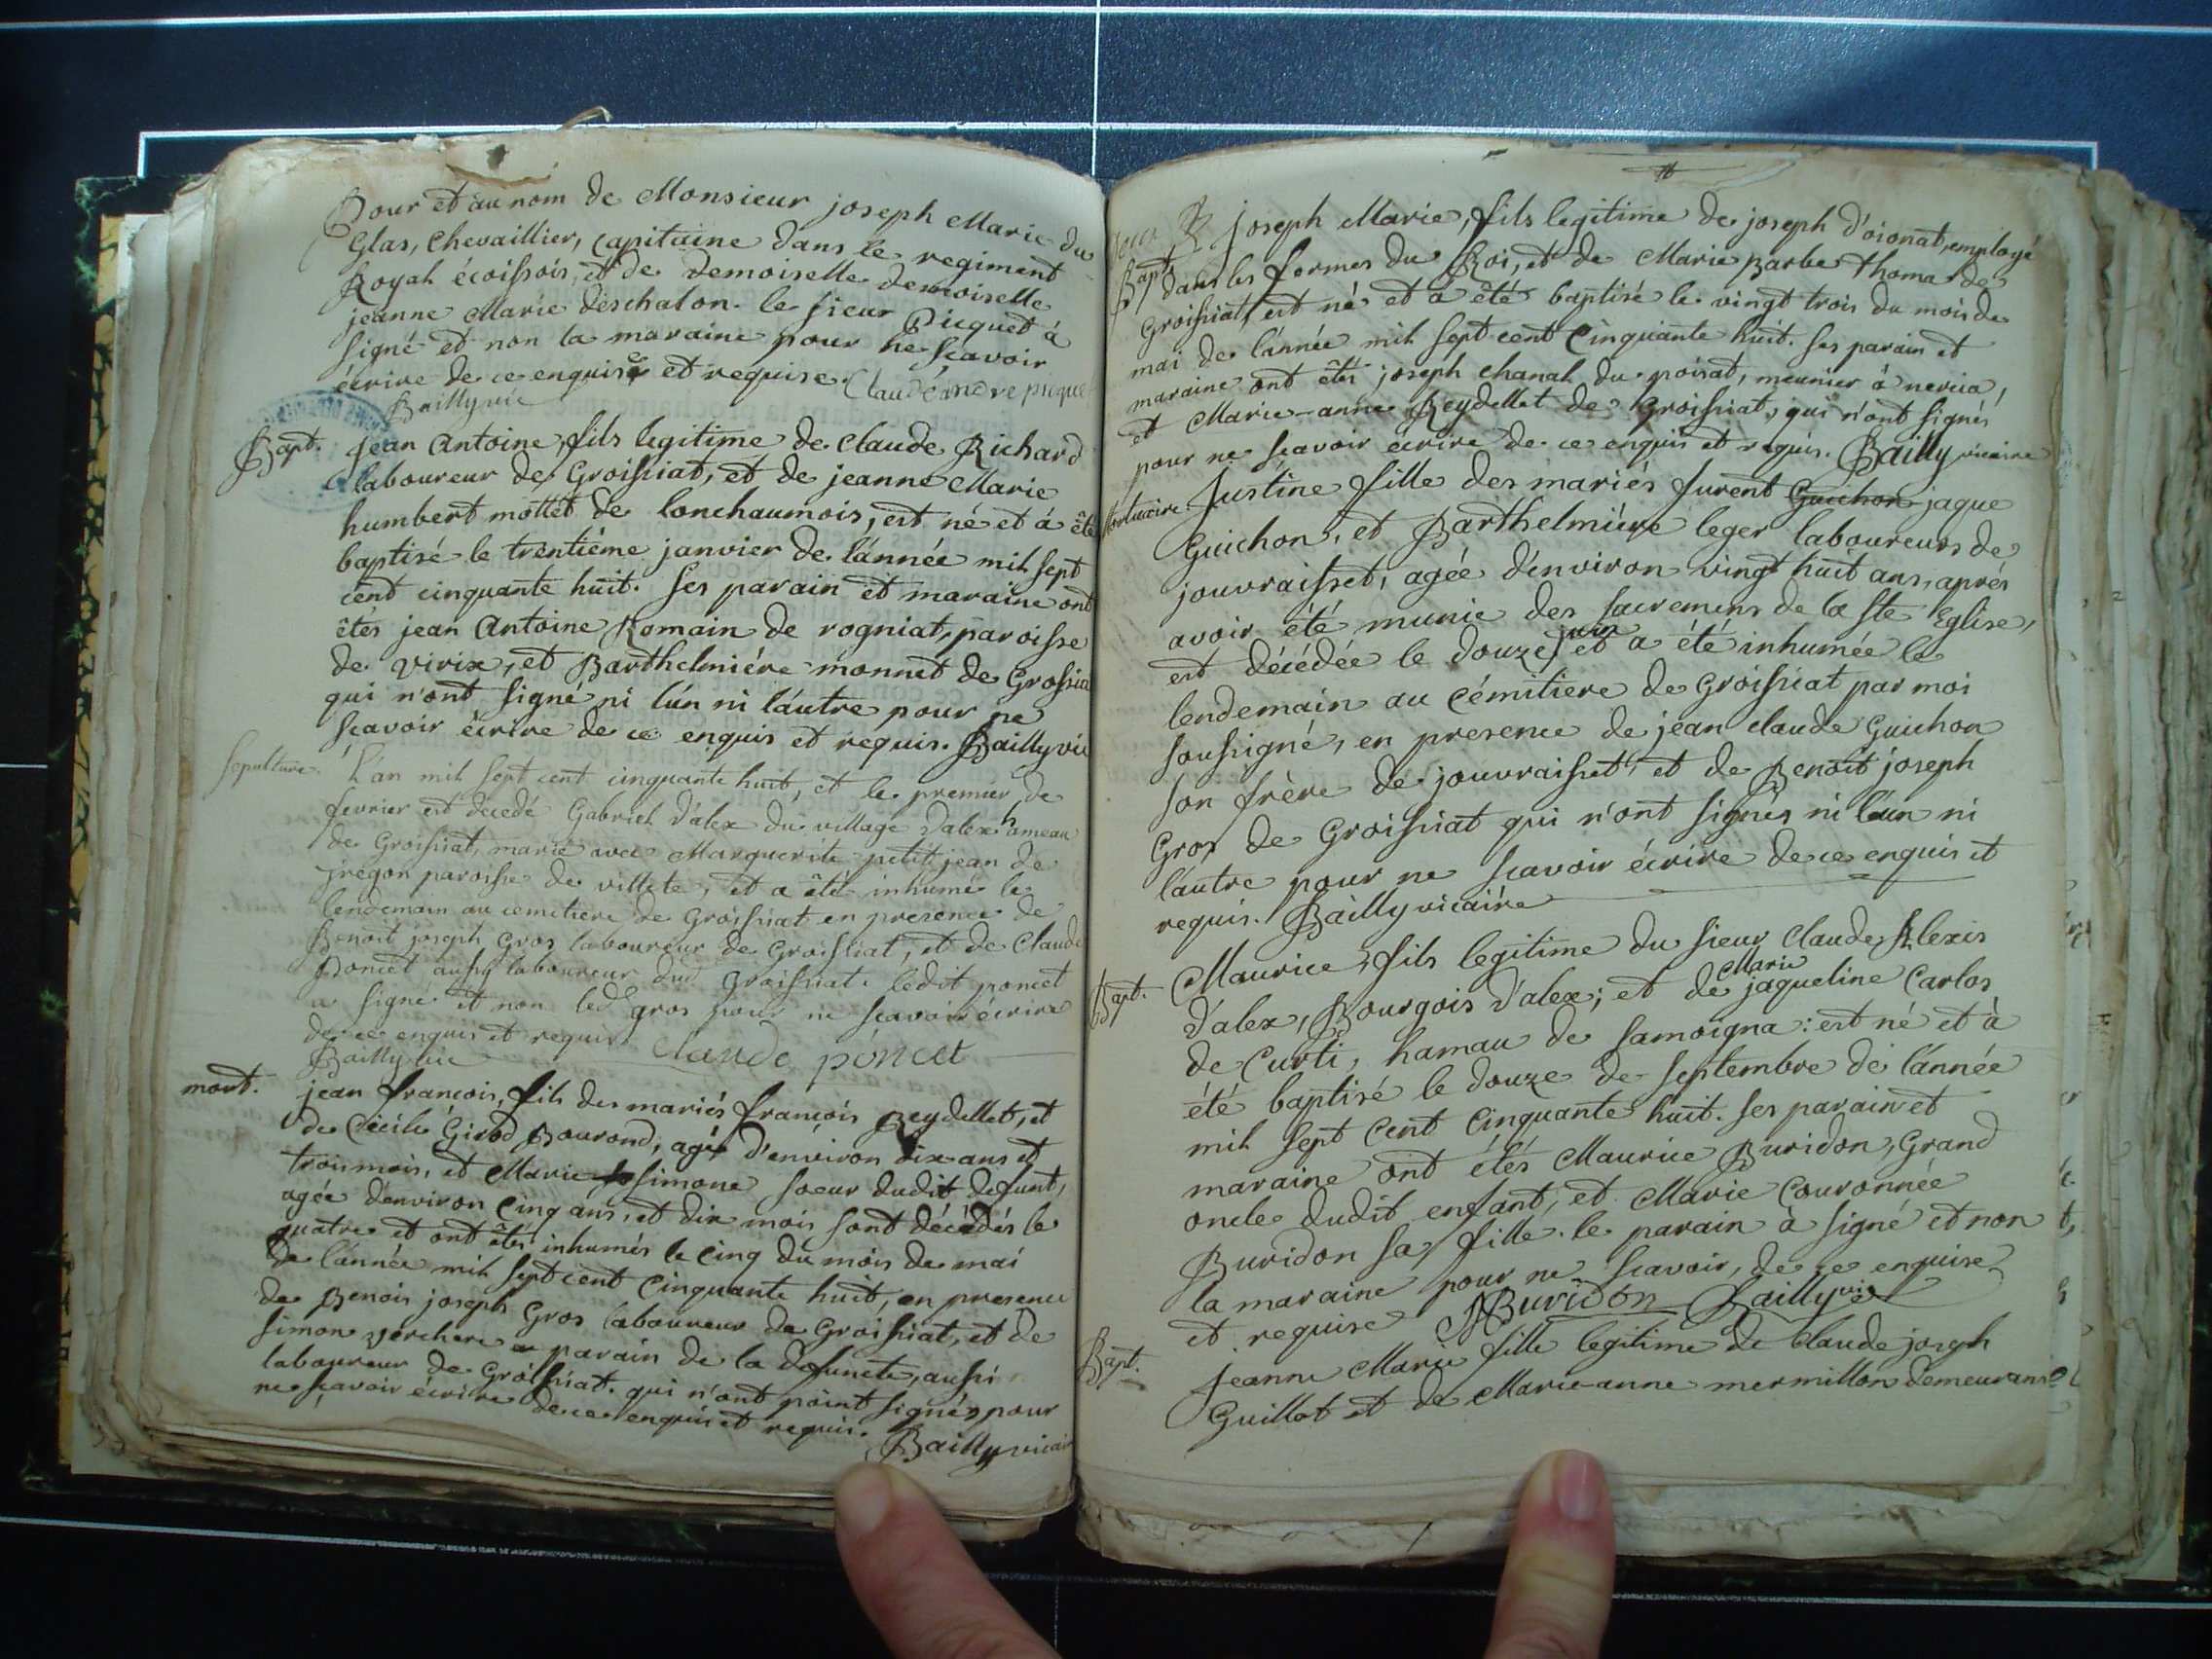 Pour et au nom de Monsieur joseph Marie du
Glas, Chevaillier, Capitaine dans le regiment
Royal écoissois, et de demoiselle demoiselle
jeanne Marie deschalon. le sieur Picquet à
signé et non la maraine pour ne scavoir
écrire de ce enquise et requise. Claude andre picquet
Bailly vic
Bapt. jean Antoine, fils legitime de Claude Richard
laboureur de Groissiat, et de jeanne Marie
humbert mottet de lonchaumois, est né et à été
baptisé le trentiéme janvier de l'année mil sept
cent cinquante huit. Ses parain et maraine ont
êtés jean Antoine Romain de rogniat, paroisse
de virix, et Barthelmiére monnet de Grossiat
qui n'ont signé ni l'ún ni l'áutre pour ne
scavoir écrire de ce enquis et requis. Bailly vic
sepulture. L'an mil sept cent cinquante huit, et le premier de
fevrier est decedé Gabriel d'alex du village d'alex hameau
de Groissiat, marié avec Marguerite petit jean de
jregon paroisse de villete, et a êté inhumé le
lendemain au cemitiere de Groissiat en presence de
Benoit joseph Gros laboureur de Groissiat, et de Claude
Poncet aussy laboureur dud Groissiat. ledit poncet
a signé et non led gros pour ne scavoir écrire
de ce enquis et requis Claude poncet
Bailly vic
mort. jean francois, fils des mariés francois Reydellet, et
de Cécile Girod Bourond, agé d'environ dix ans et
trois mois, et Marie simone soeur dudit defunt,
agée d'environ Cinq ans, et dix mois sont décédés le
quatre et ont êtés inhumés le Cinq du mois de mai
de l'année mil sept cent Cinquante huit, en presence
de Benois joseph Gros laboureur de Groissiat, et de
simon verchere parain de la defuncte, aussi
laboureur de Groissiat. qui n'ont point signés pour
ne scavoir écrire de ce enquis et requis.
Bailly vicair
Bapt joseph Marie, fils legitime de joseph d'oionat, employé
dans les fermes du Roi, et de Marie Barbe thoma de
Groissiat, est né et à êté baptisé le vingt trois du mois de
mai de l'année mil sept cent Cinquante huit. ses parain et
maraine ont êtés joseph chanal du poisat, meunier à nercia,
et Marie-anne Reydellet de Groissiat, qui n'ont signés
pour ne scavoir écrire de ce enquis et requis. Bailly vicaire
Mortuaire. Justine fille des mariés furent Guichon jaque
Guichon, et Barthelmiére leger laboureurs de
jouvraisset, agée d'environ vingt huit ans, aprés
avoir été munie des sacremens de la ste Eglise,
est décédée le douze juin et a été inhumée le
lendemain au cémitiere de Groissiat par moi
soussigné, en presence de jean claude Guichon
son frère de jouvraisset, et de Benoit joseph
Gros de Groissiat qui n'ont signés ni l'un ni
l'autre pour ne scavoir écrire de ce enquis et
requis. Bailly vicaire
Bapt. Maurice, fils legitime du sieur Claude Alexis
d'alex, Bourgois d'alex; et de Marie jaqueline Carlos
de Curti, hamau de Samoigna: est né et à
été baptisé le douze de septembre de l'année
mil sept Cent Cinquante huit. ses parain et
maraine ont étés Maurice Buridon, Grand
oncle dudit enfant, et Marie Couronnée
Buridon sa fille. le parain à signé et non
la maraine pour ne scavoir, de ce enquise
et requise MBuridon Bailly vic
Bapt. jeanne Marie fille legitime de Claude joseph
Guillot et de Marie-anne mermillon demeurans